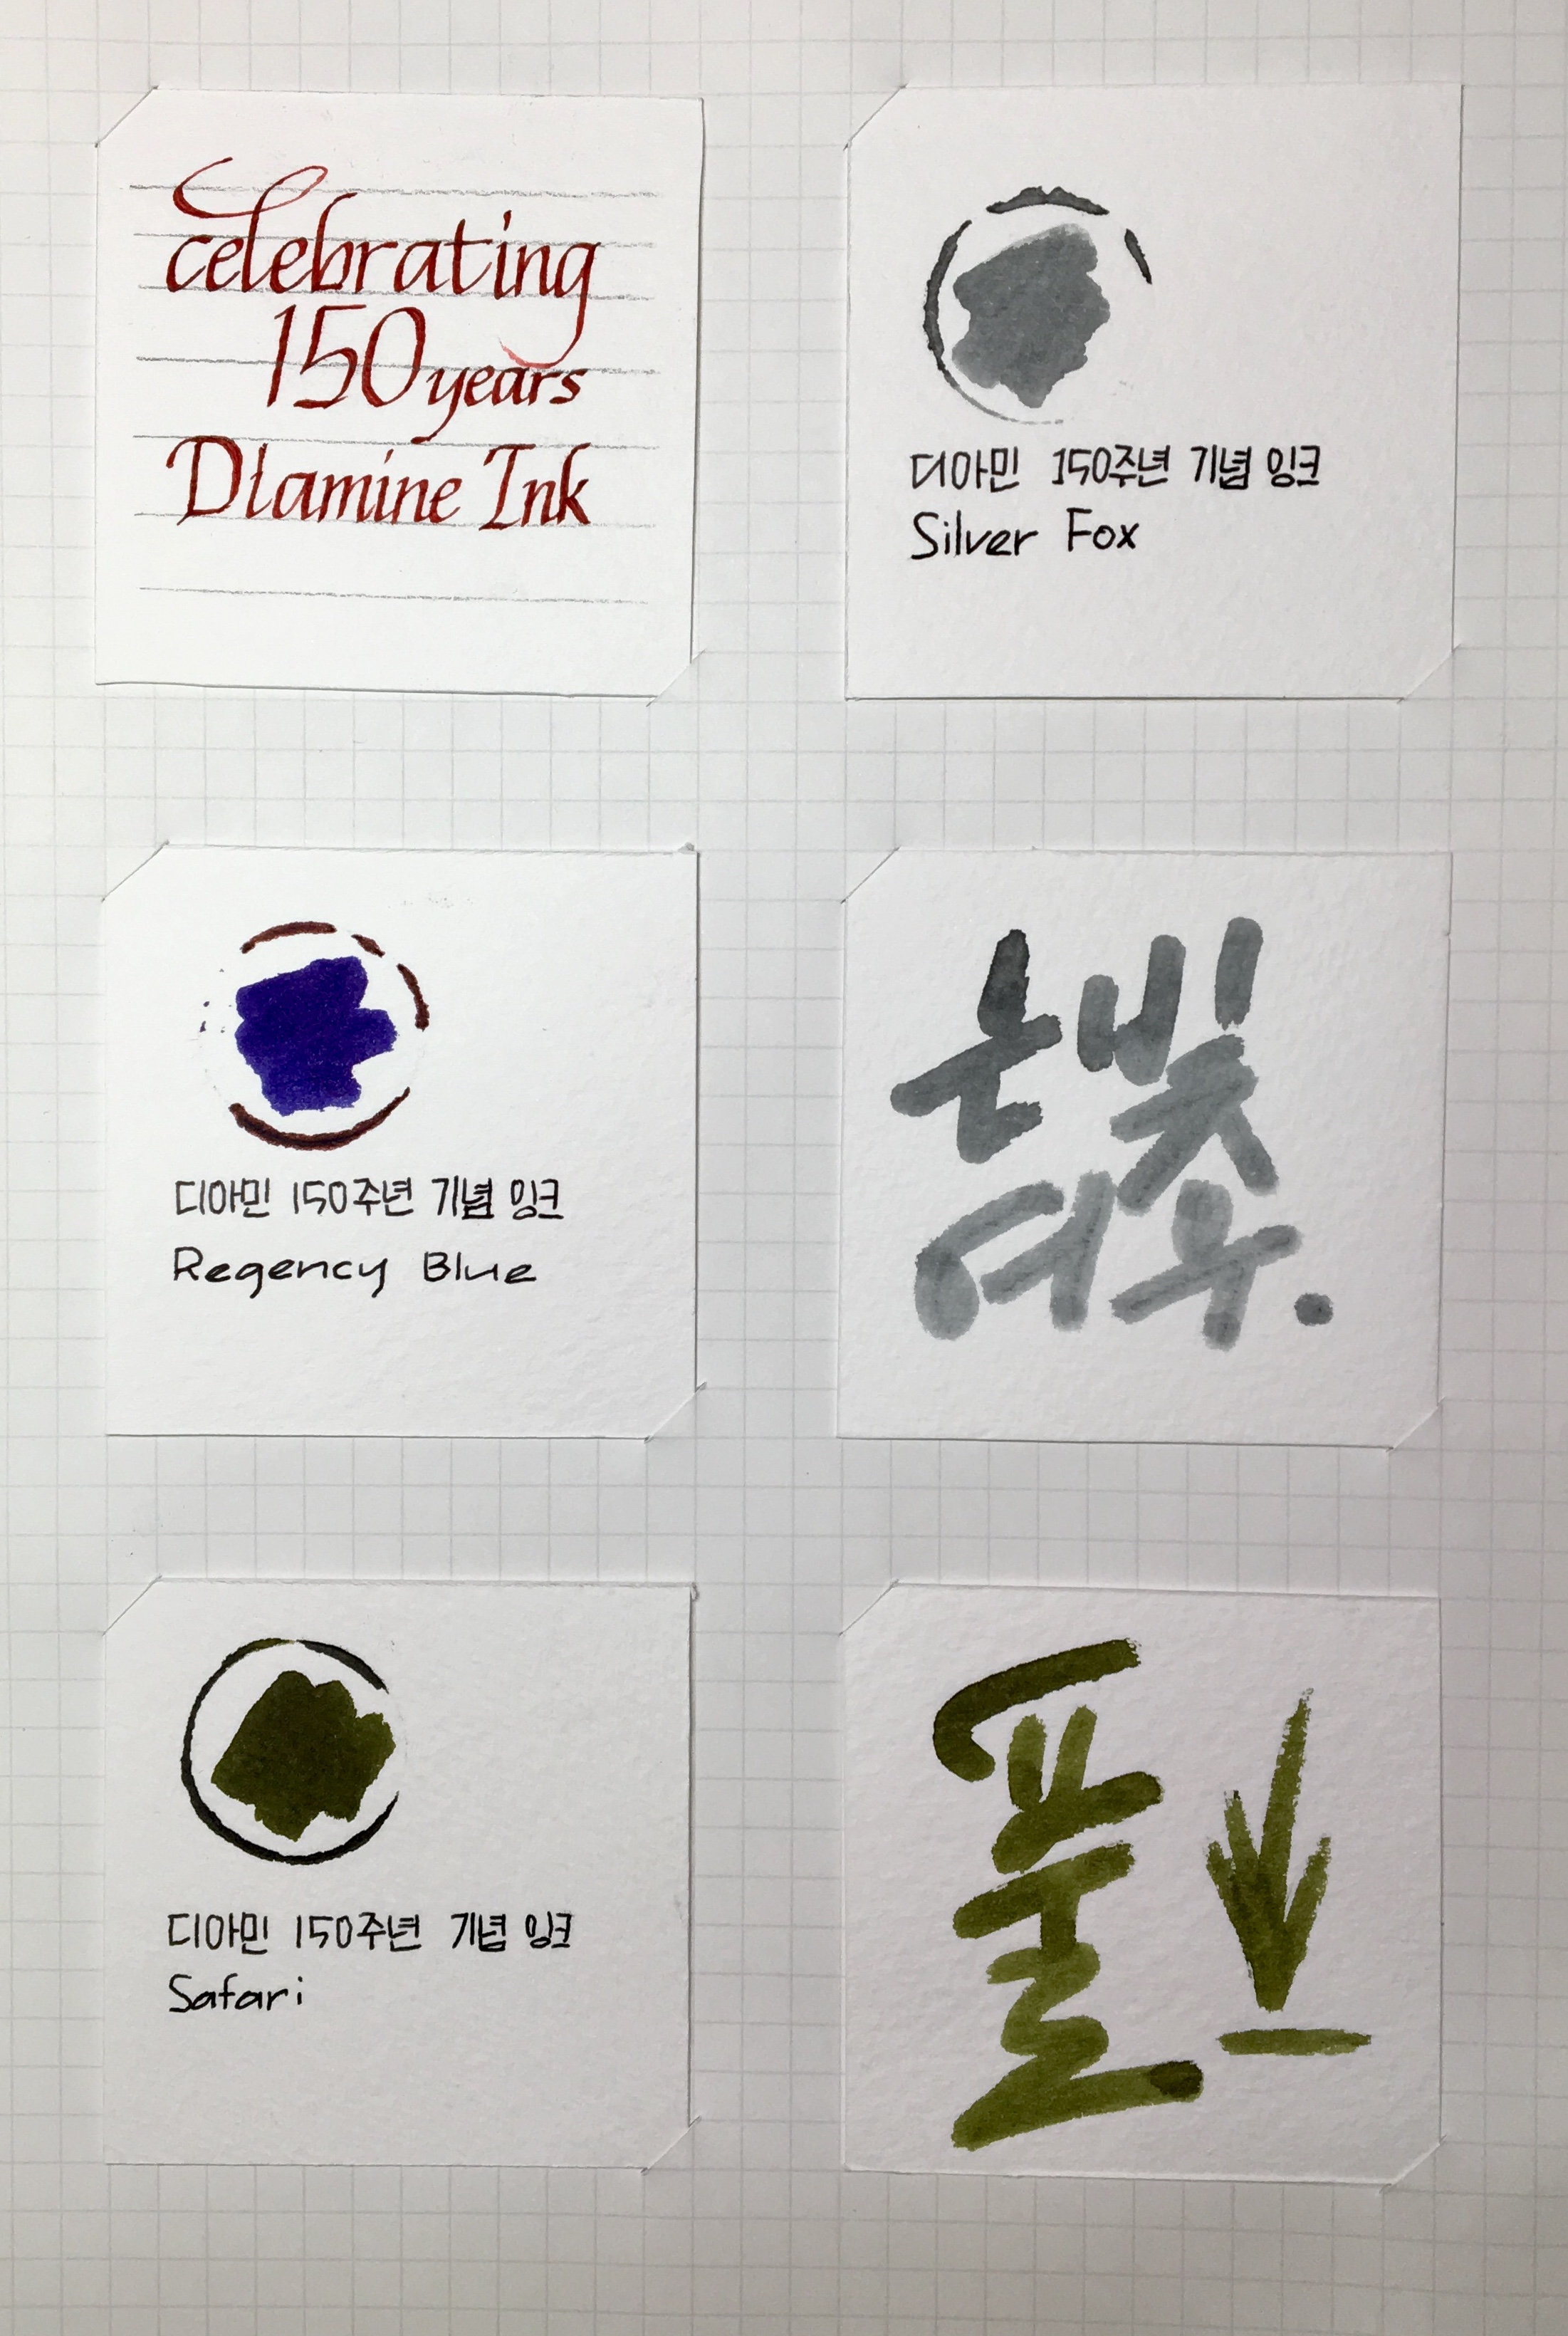 celebrating
150 years
Diamine Ink
디아민 150주년 기념 잉크
Silver Fox
디아민 150주년 기념 잉크
Regency Blue
은빛
여우.
디아민 150주년 기념 잉크
Safari
풀